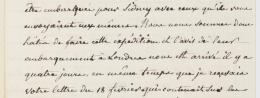 être embarqués pour Sidney avec ceux qu'ils nous
envoyaient eux mêmes. Nous nous sommes donc
hâtés de faire cette expédition et l'avis de leur
embarquement à Londres nous est arrivé il y a
quatre jours, en même temps que je recevais
votre lettre du 18 février qui contenait sur les